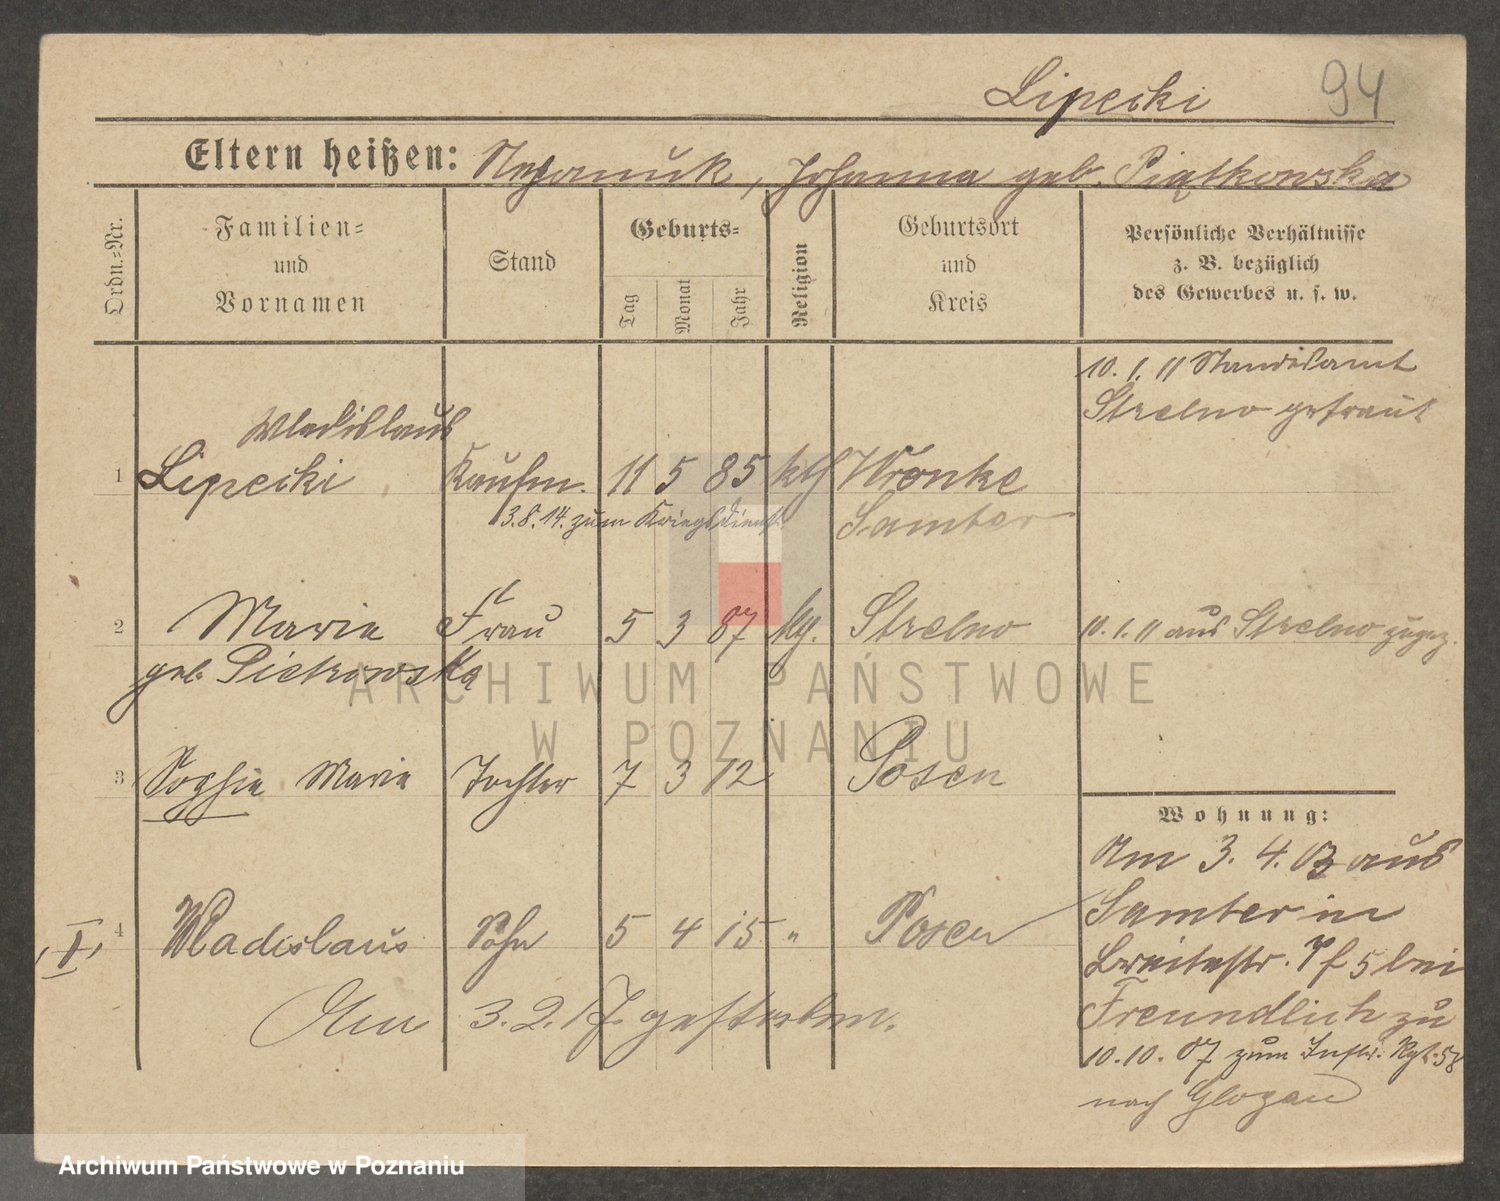 Lipecki 94
Eltern heißen: Nepomuk, Johanna geb. Piątkowska
Ordn.-Nr.
Familien-
und
Vornamen
Stand
Geburts-
Tag
Monat
Jahr
Religion
Geburtsort
und
Kreis
Persönliche Verhältnisse
z. B. bezüglich
des Gewerbes u. s. w.
10. 1. 11 Standesamt
Strelno getraut
Wladislaus
1 Lipecki Kaufm. 11 5 85 kth Wronke
3.8.14. zum Kriegsdienst
Samter
2 Marie Frau 5 3 87 kth. Strelno 10. 1. 11 aus Strelno zugez.
geb. Pietrowska
3 Sophie Marie Tochter 7 3 12 Posen
Wohnung:
Am 3. 4. 03 aus
Samter in
Breitestr. 5 bei
Freundlich zu
10. 10. 07 zum Inftr. Rgt. 58
nach Glogau
4 Wladislaus Sohn 5 4 15 " Posen
Am 3. 2. 17. gestorben.
ARCHIWUM PAŃSTWOWE
W POZNANIU
Archiwum Państwowe w Poznaniu